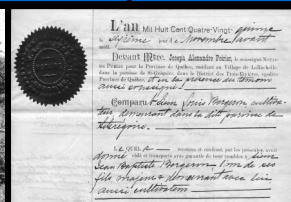 L'an Mil Huit Cent Quatre-Vingt-quinze
le sixième jour de Novembre avant
midi.
Devant Mtre. Joseph Alexandre Poirier, le soussigné Notai-
re Public pour la Province de Québec, résidant au Village de
dans la paroisse de St-Grégoire, dans le District des Trois-Rivières, susdite
Province de Québec, et en la présence du témoin
aussi soussigné.
Comparut Sieur Louis Bergeron cultiva-
teur demeurant dans la dite paroisse de
St Grégoire.
LEQUEL a reconnu et confessé, par les présentes, avoir
donné cédé et transporté avec garantie de tous troubles à Sieur
Jean Baptiste Bergeron l'un de ses
fils majeur & demeurant avec lui
aussi cultivateur